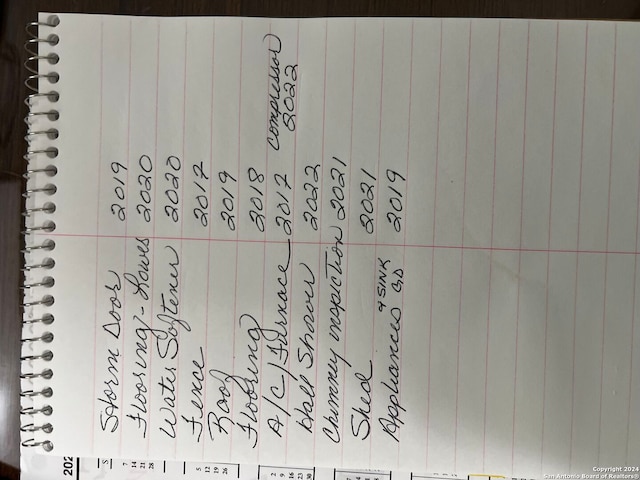 Storm Door 2019
Flooring - Lowes 2020
Water Softener 2020
Fence 2017
Roof 2019
Flooring 2018
A/C/Furnace 2017 compressor 2022
Hall Shower 2022
Chimney inspiction 2021
Shed 2021
Appliances + SINK GD 2019
202
S
7 14 21 28
5 12 19 26
2 9 16 23 30
Copyright 2024
San Antonio Board of Realtors®